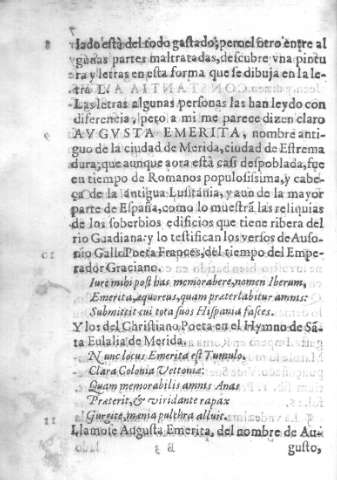 8 lado està del todo gastado; pero el otro entre al
gunas partes maltratadas, descubre vna pintu
ra y letras en esta forma que se dibuja en la le-
tra L.
Las letras algunas personas las han leydo con
diferencia, pero a mi me parece dizen claro
9 AVGVSTA EMERITA, nombre anti-
guo de la ciudad de Merida, ciudad de Estrema
dura; que aunque aora està casi despoblada, fue
en tiempo de Romanos populosissima, y cabe-
ça de la antigua Lusitania, y aũ de la mayor
parte de España, como lo muestrã las reliquias
de los soberbios edificios que tiene ribera del
rio Guadiana: y lo testifican los versos de Auso-
10 nio Gallo Poeta Frances, del tiempo del Empe-
rador Graciano.
Iure mihi post has memorabere, nomen Iberum,
Emerita, æquoreus, quam præterlabitur amnis:
Submittit cui tota suos Hispania fasces.
Y los del Christiano Poeta en el Hymno de Sã-
ta Eulalia de Merida.
Nunc locus Emerita est Tumulo,
Clara Colonia Vettoniæ:
Quam memorabilis amnis Anas
Præterit, & viridante rapax
Gurgite, mænia pulchra alluit.
11 Llamose Augusta Emerita, del nombre de Au-
gusto,